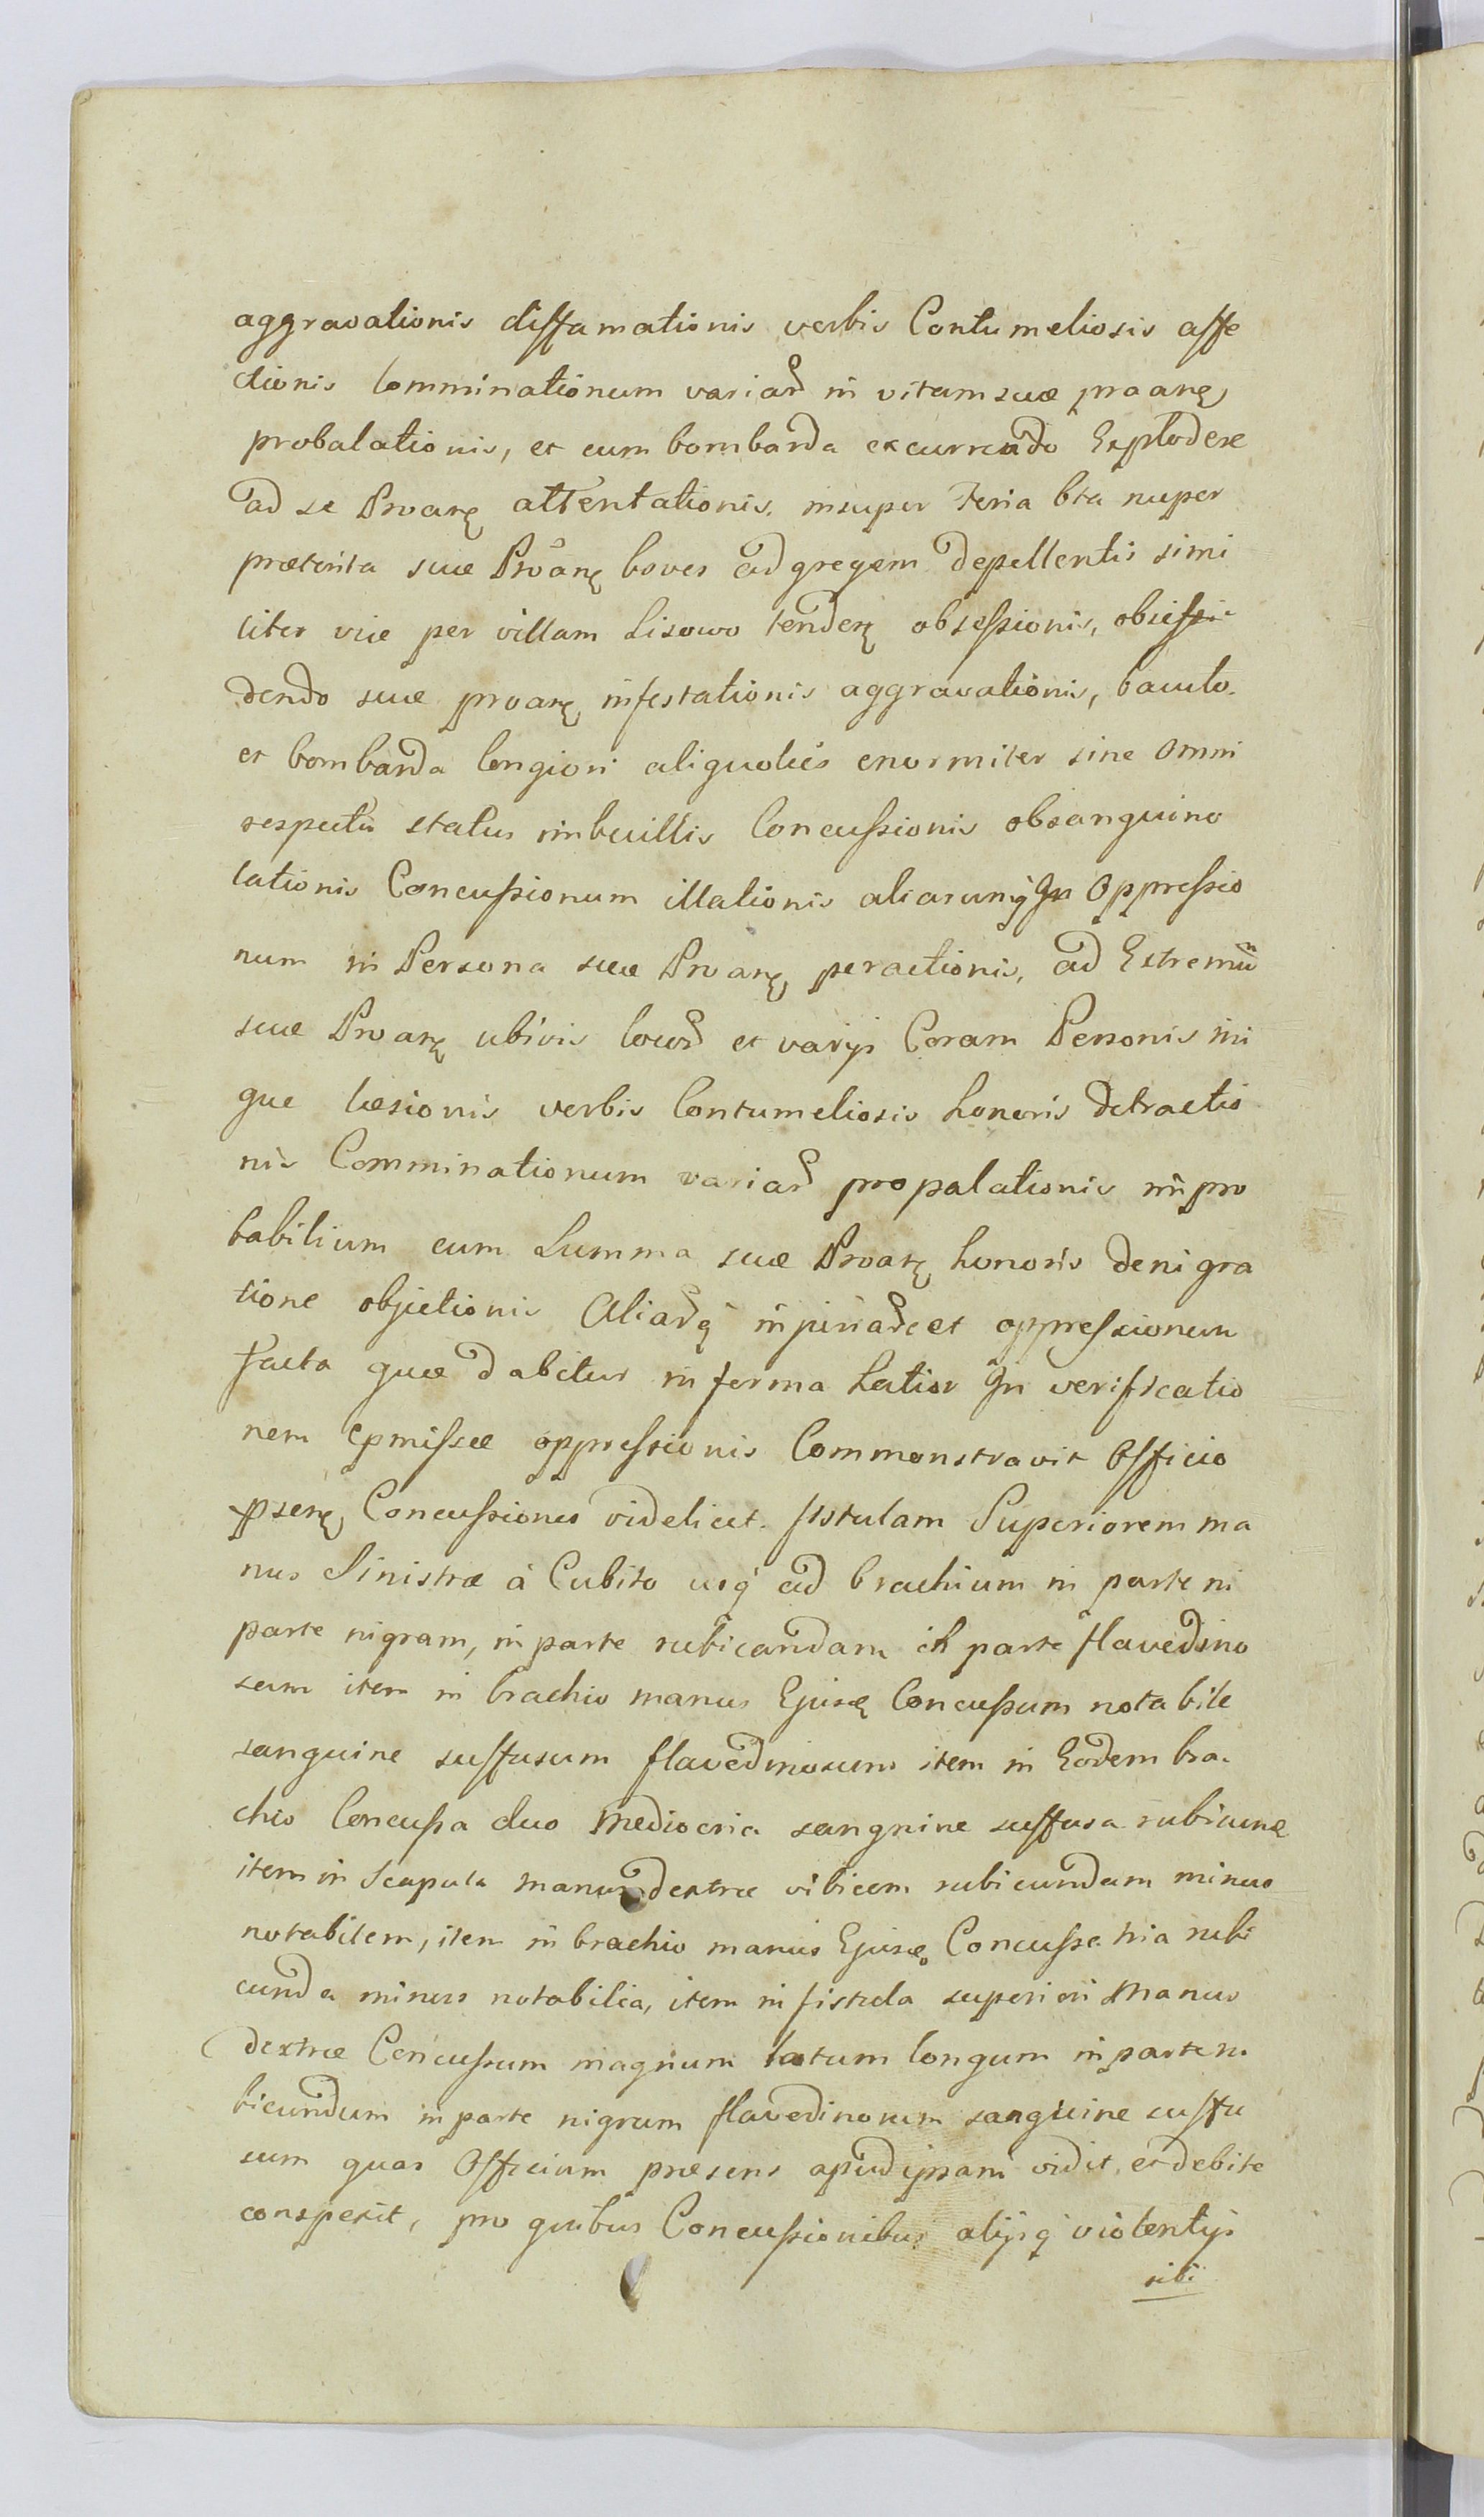 aggravationis diffamationis verbis Contumeliosis affe
ctionis Comminationum variar in vitam suae proanę
probalationis, et cum bombarda excurrendo Explodere
ad se Proanę attentationis, insuper Feria 6ta nuper
praeterita suae Proanę boves ad gregem depellentis simi
liter viae per villam Lisowo tendenę obsessionis, obsessi
dendo suae proanę infestationis aggravationis, baculo
et bombarda longiori aliquoties enormiter sine omni
respectu status imbecillis Concussionis obsanguino
lationis Concussionum illationis aliarumq In Oppressio
num in Persona suae Proanę peractionis, ad Extremu
suae Proanę ubivis locor et varijs Coram Personis ini
que laesionis verbis Contumeliosis honoris detractio
nis Comminationum variar propalationis impro
babilium cum Summa suae Proanę honoris denigra
tione objectionis Aliarq injuriar et oppressionum
facta quae dabitur in forma Latior In verificatio
nem epmissae oppressionis Commonstravit Officio
psenę Concussiones videlicet fistulam Superiorem ma
nus Sinistrae à Cubito usq ad brachium in parte ni
parte nigram, in parte rubicandam in parte flavedino
sam item in brachio manus Ejusdę Concussum notabile
sanguine suffusum flavedinosum item in Eodem bra
chio Concussa duo mediocria sanguine suffusa rubicunda
item in Scapula manus dextrae vibicem rubicundam minus
notabilem, item in brachio manus Ejusdę Concussa tria rubi
cunda minus notabilia, item in fistula superiori manus
dextrae Concussum magnum latum longum in parte ru
bicundum in parte nigrum flavedinosum sanguine suffu
sum quas Officium praesens apud ipsam vidit et debite
conspexit, pro quibus Concussionibus alijsq violentijs
sibi